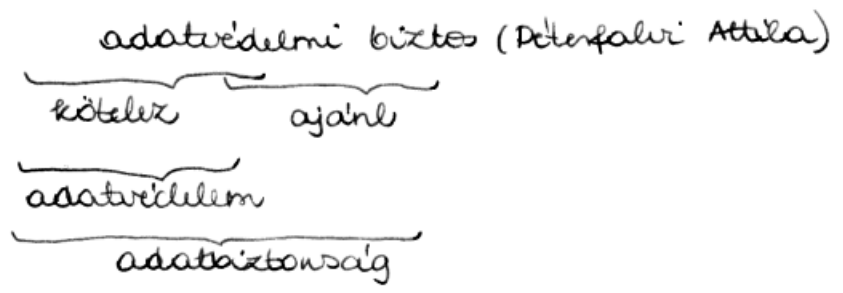 adatvédelmi biztos (Péterfalvi Attila)
kötelez ajánl
adatvédelem
adatbiztonság